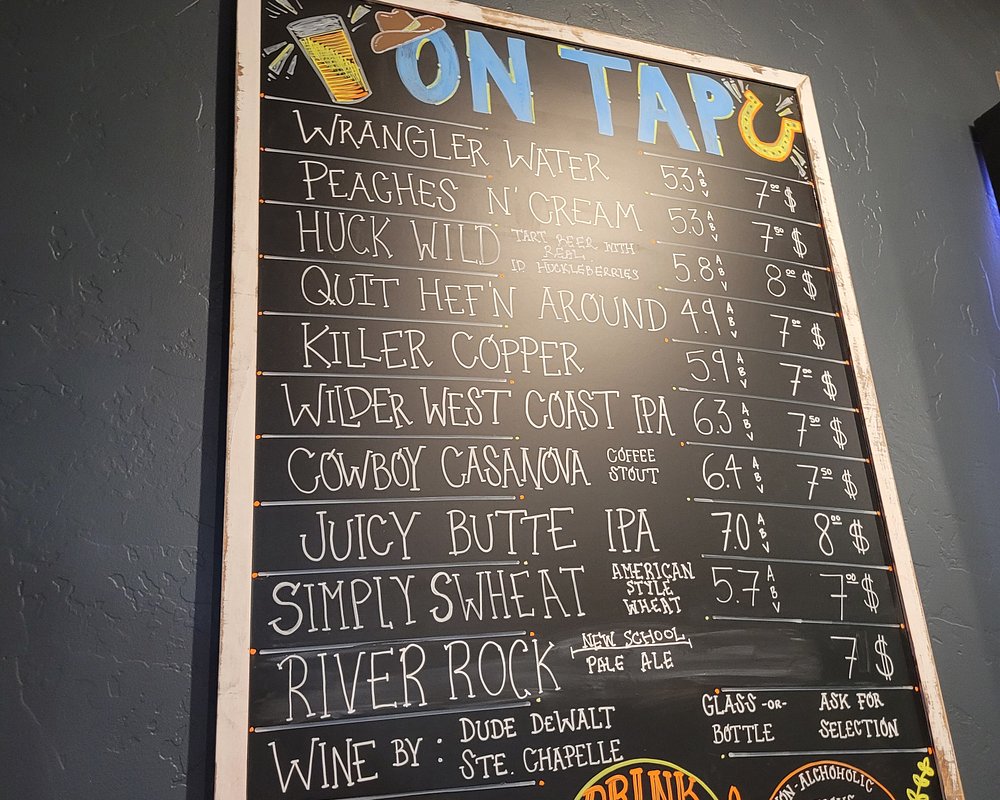 ON TAP
WRANGLER WATER 5.3 ABV 7⁰⁰ $
PEACHES N' CREAM 5.3 ABV 7⁵⁰ $
HUCK WILD TART BEER WITH REAL ID HUCKLEBERRIES 5.8 ABV 8⁰⁰ $
QUIT HEF'N AROUND 4.9 ABV 7⁰⁰ $
KILLER COPPER 5.9 ABV 7⁰⁰ $
WILDER WEST COAST IPA 6.3 ABV 7⁵⁰ $
COWBOY CASANOVA COFFEE STOUT 6.4 ABV 7⁵⁰ $
JUICY BUTTE IPA 7.0 ABV 8⁰⁰ $
SIMPLY SWHEAT AMERICAN STYLE WHEAT 5.7 ABV 7⁰⁰ $
RIVER ROCK NEW SCHOOL PALE ALE 7 $
WINE BY: DUDE DEWALT STE. CHAPELLE GLASS -OR- BOTTLE ASK FOR SELECTION
DRINK
NON-ALCHOHOLIC